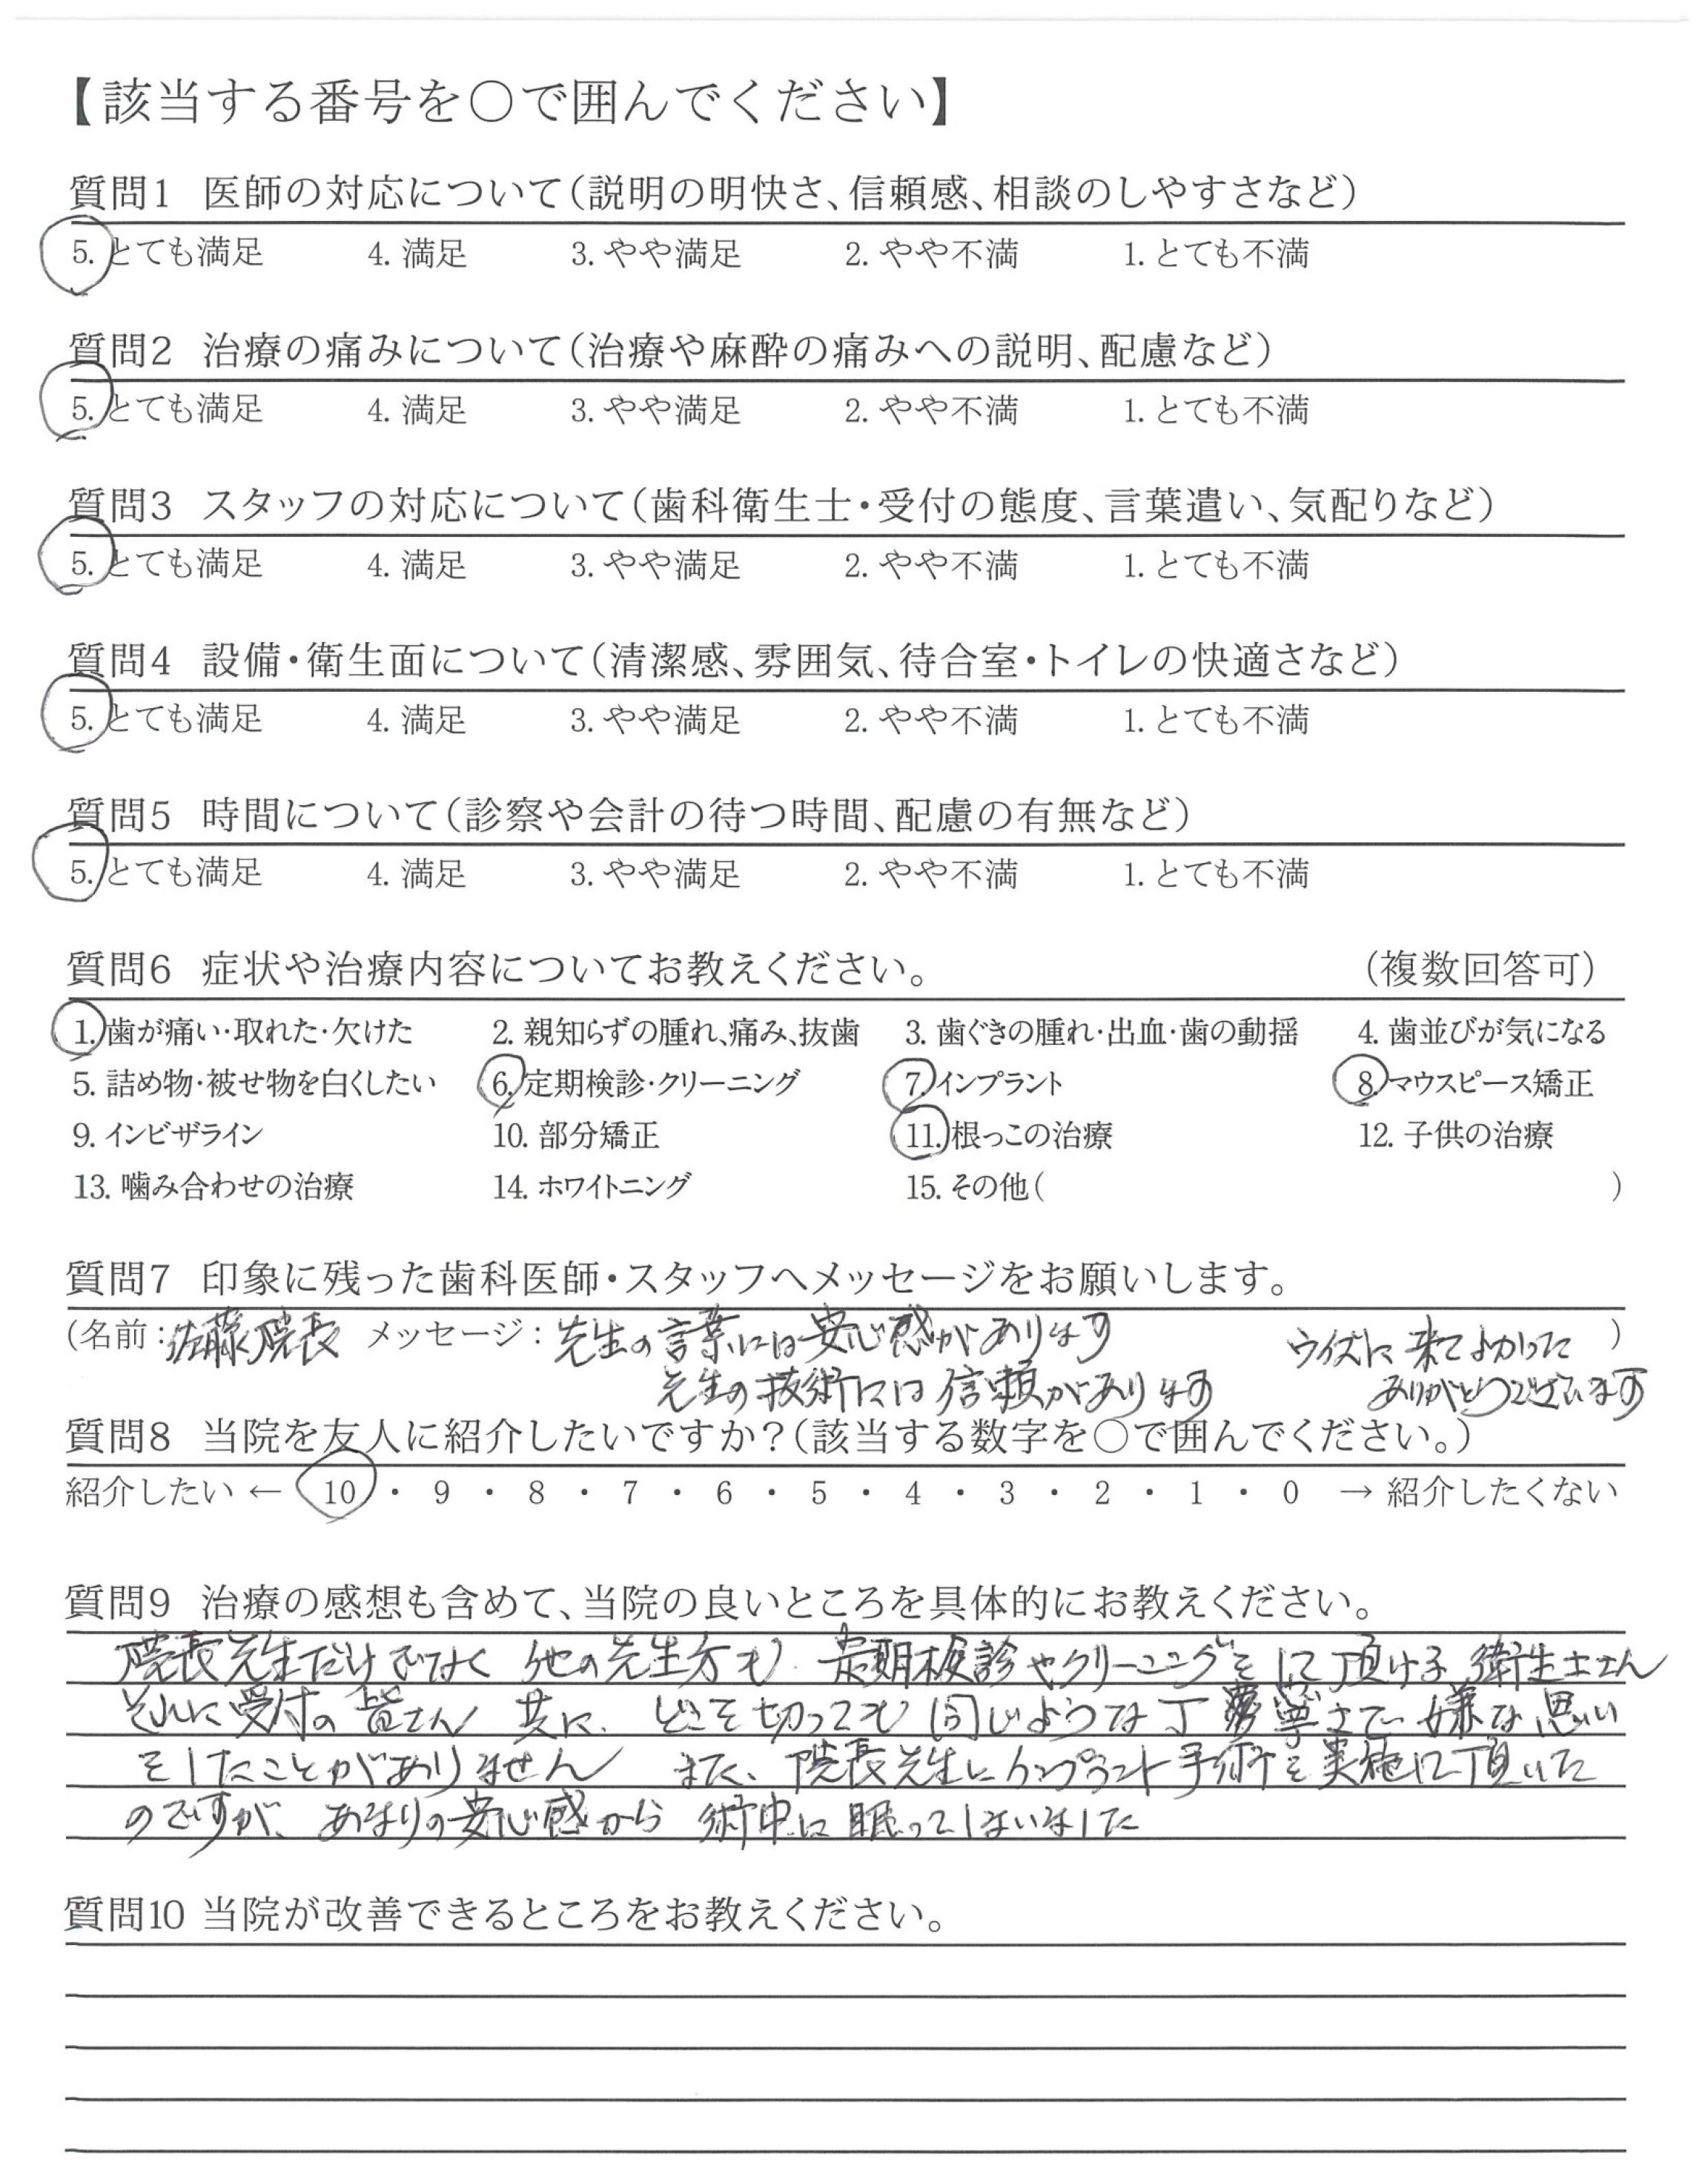 【該当する番号を〇で囲んでください】
質問1 医師の対応について（説明の明快さ、信頼感、相談のしやすさなど）
5. とても満足 4. 満足 3. やや満足 2. やや不満 1. とても不満
質問2 治療の痛みについて（治療や麻酔の痛みへの説明、配慮など）
5. とても満足 4. 満足 3. やや満足 2. やや不満 1. とても不満
質問3 スタッフの対応について（歯科衛生士・受付の態度、言葉遣い、気配りなど）
5. とても満足 4. 満足 3. やや満足 2. やや不満 1. とても不満
質問4 設備・衛生面について（清潔感、雰囲気、待合室・トイレの快適さなど）
5. とても満足 4. 満足 3. やや満足 2. やや不満 1. とても不満
質問5 時間について（診察や会計の待つ時間、配慮の有無など）
5. とても満足 4. 満足 3. やや満足 2. やや不満 1. とても不満
質問6 症状や治療内容についてお教えください。 （複数回答可）
1. 歯が痛い・取れた・欠けた 2. 親知らずの腫れ、痛み、抜歯 3. 歯ぐきの腫れ・出血・歯の動揺 4. 歯並びが気になる
5. 詰め物・被せ物を白くしたい 6. 定期検診・クリーニング 7. インプラント 8. マウスピース矯正
9. インビザライン 10. 部分矯正 11. 根っこの治療 12. 子供の治療
13. 噛み合わせの治療 14. ホワイトニング 15. その他（ ）
質問7 印象に残った歯科医師・スタッフへメッセージをお願いします。
（名前：佐藤院長 メッセージ：先生の言葉には安心感があります ウイズに来てよかった ）
先生の技術には信頼があります ありがとうございます
質問8 当院を友人に紹介したいですか？（該当する数字を〇で囲んでください。）
紹介したい ← 10 ・ 9 ・ 8 ・ 7 ・ 6 ・ 5 ・ 4 ・ 3 ・ 2 ・ 1 ・ 0 → 紹介したくない
質問9 治療の感想も含めて、当院の良いところを具体的にお教えください。
院長先生だけでなく 他の先生方も 定期検診やクリーニングをして頂ける 衛生士さん
それに受付の皆さん 共に、どこを切っても同じような丁寧さで 嫌な思い
をしたことがありません また、院長先生にインプラント手術を実施して頂いた
のですが、あまりの安心感から 術中に眠ってしまいました
質問10 当院が改善できるところをお教えください。